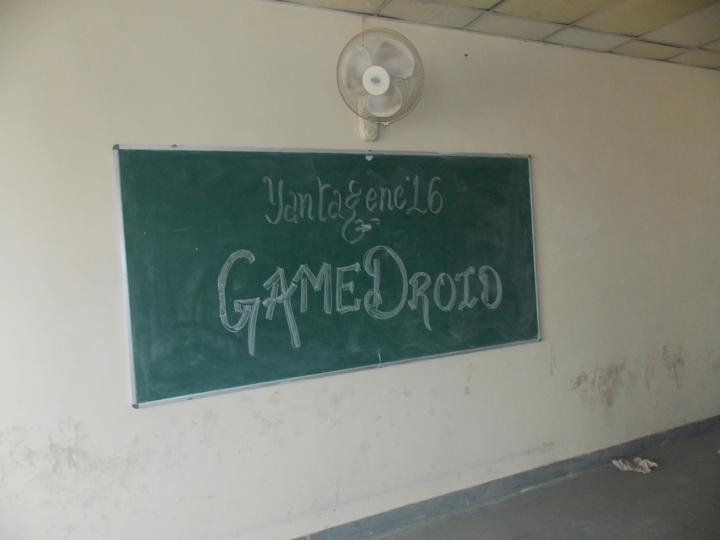 Yantagene'16
GAMEDROID